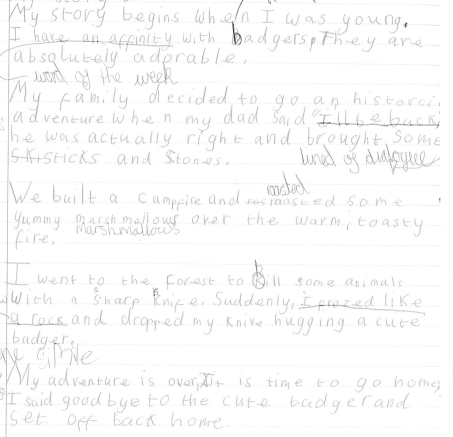 My story begins when I was young.
I have an affinity with badgers. They are
absolutely adorable.
word of the week
My family decided to go an historci
adventure when my dad said "I'll be back"
he was actually right and brought some
sticks and stones. lined of dialogue
We built a campfire and roasted some
yummy marshmallows over the warm, toasty
marshmallows
fire.
I went to the forest to kill some animals
With a sharp knife. Suddenly, I frozed like
a rock and dropped my knive hugging a cute
badger.
My adventure is over, It is time to go home,
I said goodbye to the cute badger and
set off back home.